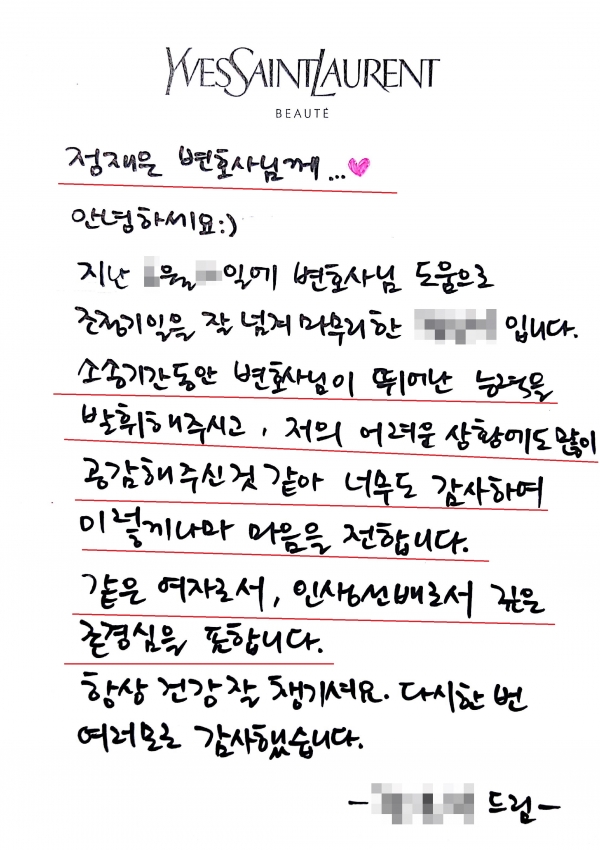 YVESSAINTLAURENT
BEAUTÉ
정재은 변호사님께...
안녕하세요:)
지난 월 일에 변호사님 도움으로
조정기일을 잘 넘겨 마무리한 입니다.
소송기간동안 변호사님이 뛰어난 능력을
발휘해주시고, 저의 어려운 상황에도 많이
공감해주신것 같아 너무도 감사하여
이렇게나마 마음을 전합니다.
같은 여자로서, 인생선배로서 깊은
존경심을 표합니다.
항상 건강 잘 챙기셔요. 다시한 번
여러모로 감사했습니다.
- 드림-